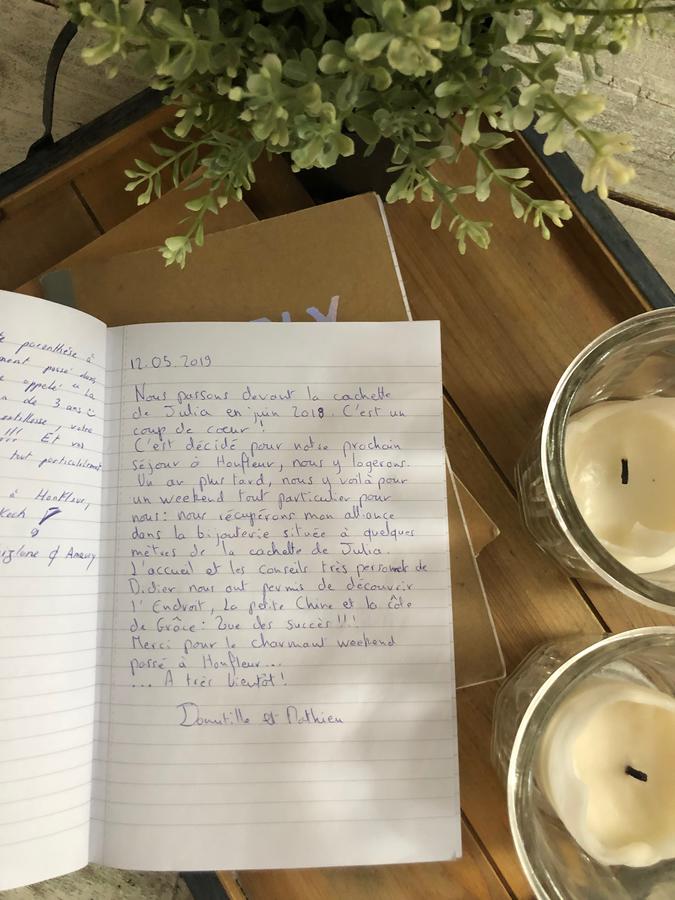 LY
te parenthèse à
ment passé dans
e appelé à la
a de 3 ans
entillesse, votre
!!! Et vos
tout particulièrement
à Honfleur,
& Anaury
12.05.2019
Nous passons devant la cachette
de Julia en juin 2018. C'est un
coup de coeur!!
C'est décidé pour notre prochain
séjour à Honfleur, nous y logerons.
Un an plus tard, nous y voilà pour
un weekend tout particulier pour
nous: nous récupérons mon alliance
dans la bijouterie située à quelques
mètres de la cachette de Julia.
L'accueil et les conseils très personnels de
Didier nous ont permis de découvrir
l'Endroit, La petite Chine et la côte
de Grâce: Que des succès!!!
Merci pour le charmant weekend
passé à Honfleur...
... A très bientôt!
Domitille et Mathieu